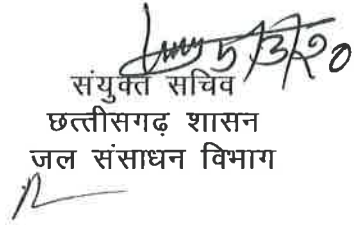 5/3/20
संयुक्त सचिव
छत्तीसगढ़ शासन
जल संसाधन विभाग